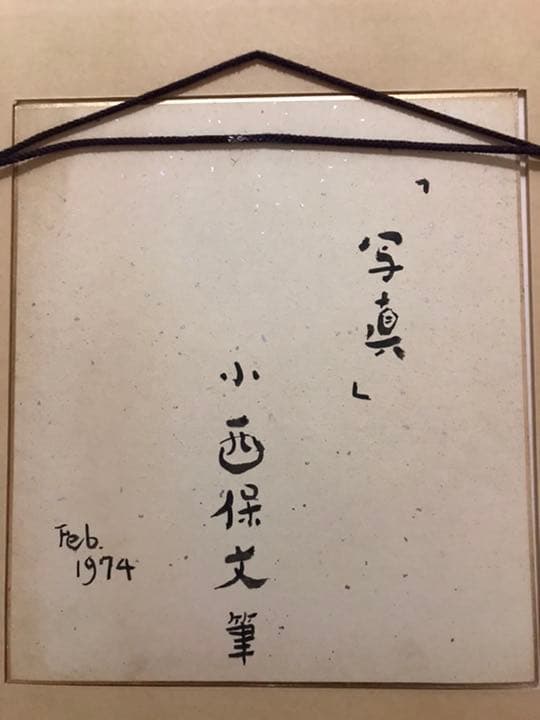 「写真」
小西保文筆
Feb.
1974